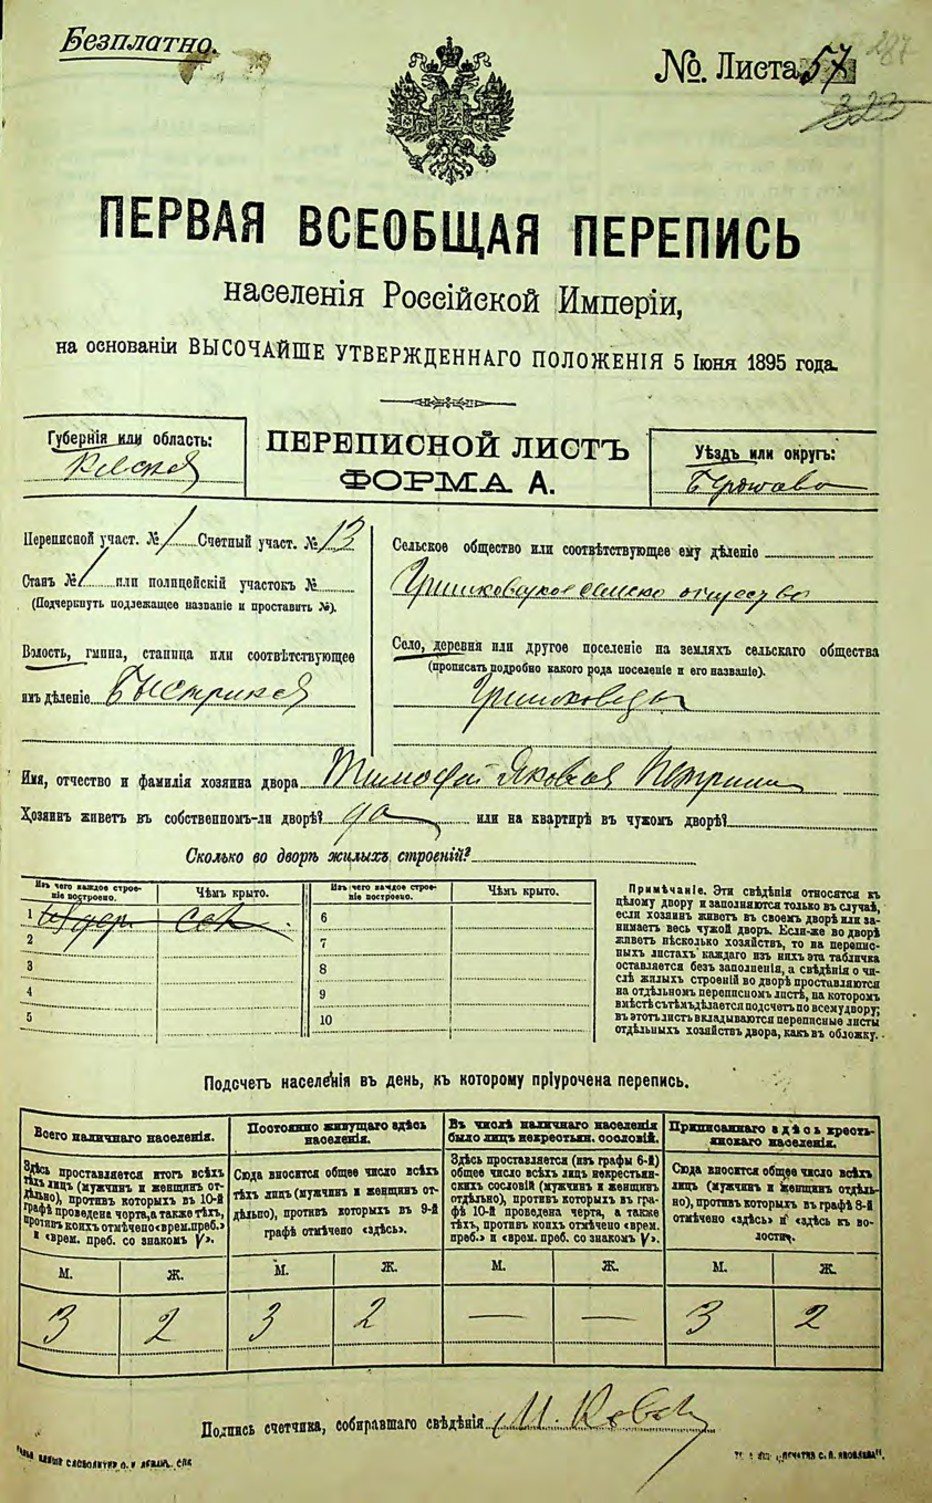 Безплатно.
№. Листа 57
287
323
ПЕРВАЯ ВСЕОБЩАЯ ПЕРЕПИСЬ
населенія Россійской Имперіи,
на основаніи ВЫСОЧАЙШЕ УТВЕРЖДЕННАГО ПОЛОЖЕНІЯ 5 Іюня 1895 года.
Губернія или область:
Киевская
ПЕРЕПИСНОЙ ЛИСТЪ
ФОРМА А.
Уѣздъ или округъ:
Переписной участ. № 1 Счетный участ. № 13
Станъ № 1 или полицейскій участокъ №
(Подчеркнуть подлежащее названіе и проставить №).
Волость, гмина, станица или соотвѣтствующее
имъ дѣленіе Быстрикская
Сельское общество или соотвѣтствующее ему дѣленіе
Село, деревня или другое поселеніе на земляхъ сельскаго общества
(прописать подробно какого рода поселеніе и его названіе).
Гришковцы
Имя, отчество и фамилія хозяина двора Тимофей Яковлев
Хозяинъ живетъ въ собственномъ-ли дворѣ? да или на квартирѣ въ чужомъ дворѣ?
Сколько во дворѣ жилыхъ строеній?
Изъ чего каждое строеніе построено.
Чѣмъ крыто.
Изъ чего каждое строеніе построено.
Чѣмъ крыто.
1
2
3
4
5
6
7
8
9
10
Примѣчаніе. Эти свѣдѣнія относятся къ
цѣлому двору и заполняются только въ случаѣ,
если хозяинъ живетъ въ своемъ дворѣ или за-
нимаетъ весь чужой дворъ. Если-же во дворѣ
живетъ нѣсколько хозяйствъ, то на переписныхъ
листахъ каждаго изъ нихъ эта табличка
оставляется безъ заполненія, а свѣдѣнія о чи-
слѣ жилыхъ строеній во дворѣ проставляются
на отдѣльномъ переписномъ листѣ, на которомъ
вмѣстѣ съ тѣмъ дѣлается подсчетъ по всему двору;
въ этотъ листъ вкладываются переписные листы
отдѣльныхъ хозяйствъ двора, какъ въ обложку.
Подсчетъ населенія въ день, къ которому пріурочена перепись.
Всего наличнаго населенія.
Здѣсь проставляется итогъ всѣхъ
тѣхъ лицъ (мужчинъ и женщинъ от-
дѣльно), противъ которыхъ въ 10-й
графѣ проведена черта, а также тѣхъ,
противъ коихъ отмѣчено «врем. преб.»
и «врем. преб. со знакомъ V».
Постоянно живущаго здѣсь
населенія.
Сюда вносится общее число всѣхъ
тѣхъ лицъ (мужчинъ и женщинъ от-
дѣльно), противъ которыхъ въ 9-й
графѣ отмѣчено «здѣсь».
Въ числѣ наличнаго населенія
было лицъ некрестьян. сословій.
Здѣсь проставляется (изъ графы 6-й)
общее число всѣхъ лицъ некрестьян-
скихъ сословій (мужчинъ и женщинъ
отдѣльно), противъ которыхъ въ гра-
фѣ 10-й проведена черта, а также
тѣхъ, противъ коихъ отмѣчено «врем.
преб.» и «врем. преб. со знакомъ V».
Приписаннаго здѣсь кресть-
янскаго населенія.
Сюда вносится общее число всѣхъ
лицъ (мужчинъ и женщинъ отдѣль-
но), противъ которыхъ въ графѣ 8-й
отмѣчено «здѣсь» и «здѣсь къ во-
лости».
М. Ж. М. Ж. М. Ж. М. Ж.
3 2 3 2 — — 3 2
Подпись счетчика, собиравшаго свѣдѣнія